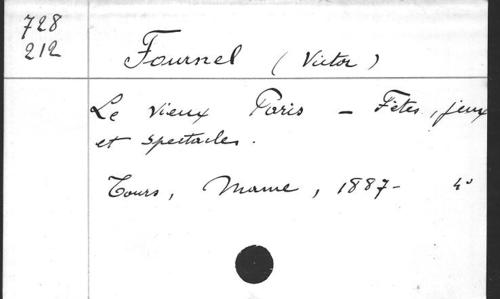 728
212
Fournel (Victor)
Le vieux Paris - Fêtes, jeux
et spectacles.
Tours, Mame, 1887- 4°